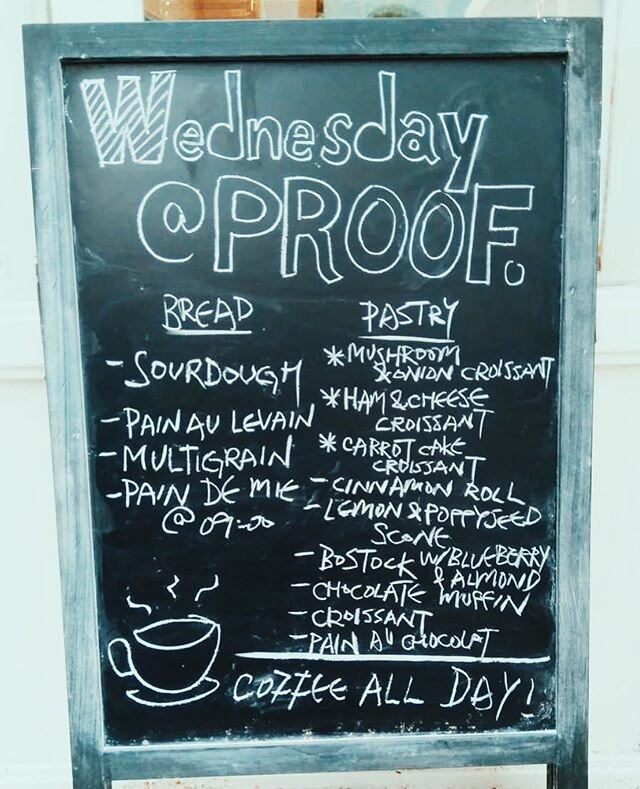 Wednesday
@PROOF.
BREAD
- SOURDOUGH
- PAIN AU LEVAIN
- MULTIGRAIN
- PAIN DE MIE
@ 09:00
PASTRY
* MUSHROOM
& ONION CROISSANT
* HAM & CHEESE
CROISSANT
* CARROT CAKE
CROISSANT
- CINNAMON ROLL
- LEMON & POPPYSEED
SCONE
- BOSTOCK W/ BLUEBERRY
& ALMOND
- CHOCOLATE MUFFIN
- CROISSANT
- PAIN AU CHOCOLAT
COFFEE ALL DAY!